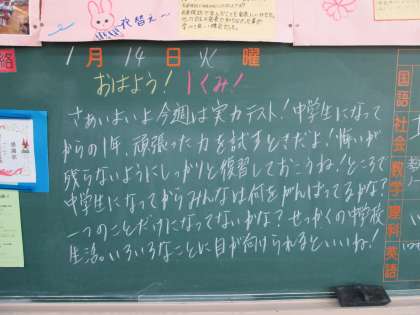 衣替え〜
1月14日火曜
絡
おはよう！1くみ！
さあいよいよ今週は実力テスト！中学生になって
からの1年、頑張った力を試すときだよ！悔いが
残らないようにしっかりと復習しておこうね！ところで
中学生になってからみんなは何をがんばってるかな？
一つのことだけになってないかな？せっかくの中学校
生活。いろいろなことに目が向けられるといいね！
国語
社会
数学
理科
英語